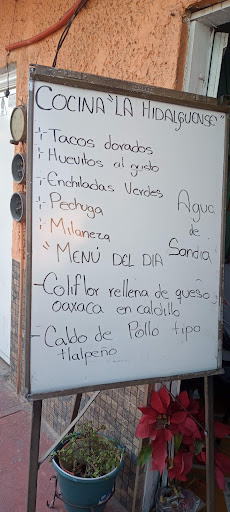 COCINA "LA HIDALGUENSE"
Tacos dorados
Huevitos al gusto
Enchiladas Verdes
Pechuga
Milaneza
Agua
de
Sandía
"MENÚ DEL DIA
- Coliflor rellena de queso
oaxaca en caldillo
- Caldo de Pollo tipo
tlalpeño